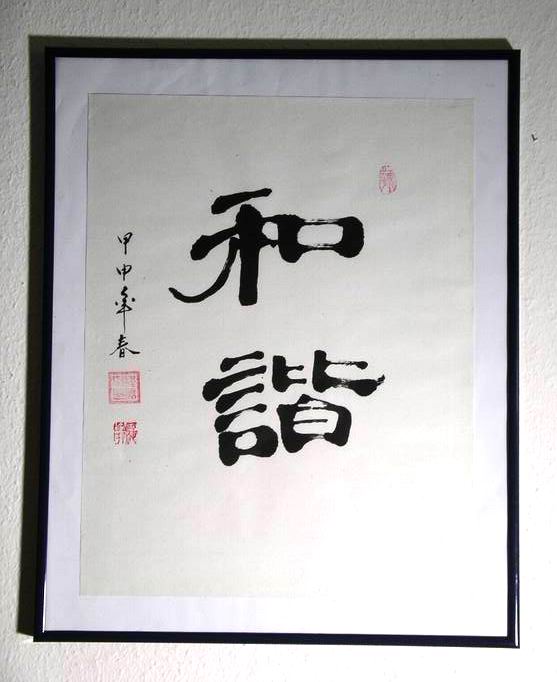 和
諧
甲申年春